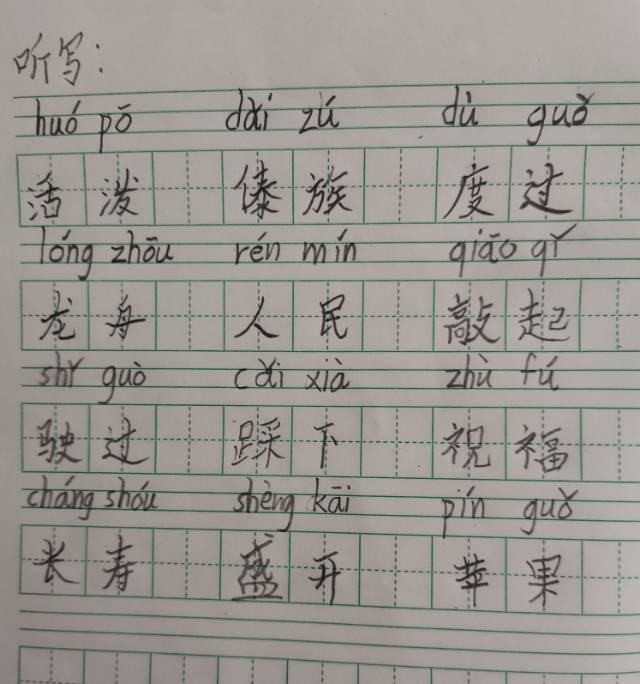 听写：
huó pō dǎi zú dù guǒ
活泼 傣族 度过
lóng zhōu rén mín qiāo qǐ
龙舟 人民 敲起
shǐ guò cǎi xià zhù fú
驶过 踩下 祝福
cháng shóu shèng kāi pín guǒ
长寿 盛开 苹果